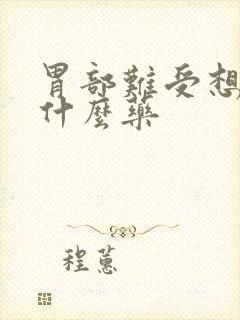 胃部難受想
什麼藥
程蕙